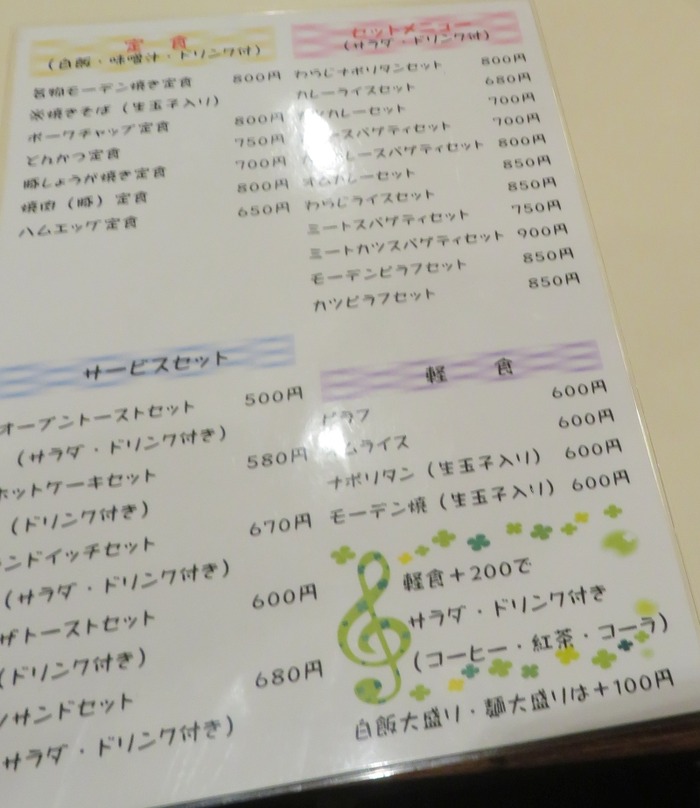 定 食
（白飯・味噌汁・ドリンク付）
名物モーデン焼き定食 800円
焼きそば（生玉子入り）
ポークチャップ定食 800円
とんかつ定食 750円
豚しょうが焼き定食 700円
焼肉（豚）定食 800円
ハムエッグ定食 650円
セットメニュー
（サラダ・ドリンク付）
わらじナポリタンセット 800円
カレーライスセット 680円
カレーセット 700円
スパゲティセット 700円
レースパゲティセット 800円
オムカレーセット 850円
わらじライスセット 850円
ミートスパゲティセット 750円
ミートカツスパゲティセット 900円
モーデンピラフセット 850円
カツピラフセット 850円
サービスセット
オープントーストセット 500円
（サラダ・ドリンク付き）
ホットケーキセット 580円
（ドリンク付き）
ンドイッチセット 670円
（サラダ・ドリンク付き）
ザトーストセット 600円
（ドリンク付き）
サンドセット 680円
サラダ・ドリンク付き）
軽 食
ピラフ 600円
ムライス 600円
ナポリタン（生玉子入り） 600円
モーデン焼（生玉子入り） 600円
軽食＋200で
サラダ・ドリンク付き
（コーヒー・紅茶・コーラ）
白飯大盛り・麺大盛りは＋100円